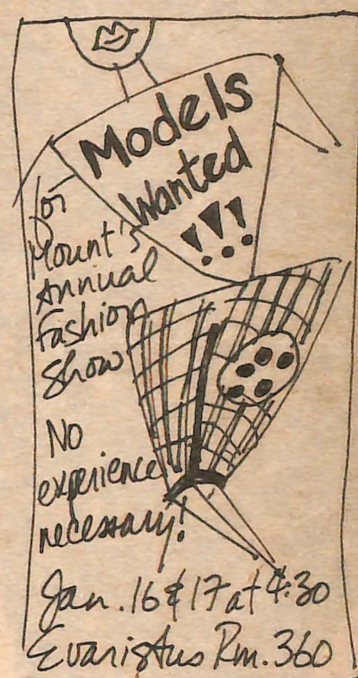 Models
Wanted
!!!
for
Mount's
Annual
Fashion
Show
No
experience
necessary!
Jan. 16 & 17 at 4:30
Evaristus Rm. 360